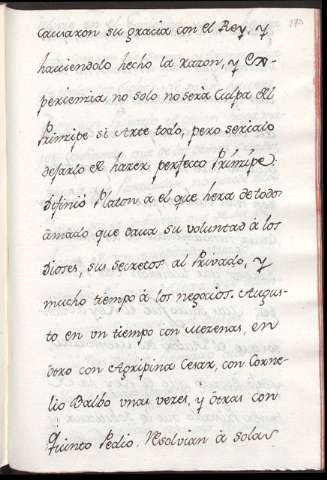 causaron su gracia con el Rey, y
haviendolo hecho la razon, y Ex-
periemzia no solo no serà Culpa del
Primzipe si Arte todo, pero serialo
dejarlo de hazer perfecto Primzipe.
difinió Platon á el que hera de todos
ámado que daua su voluntad á los
dioses, sus secretos al Privado, y
mucho tiempo á los negocios. Augus-
to en vn tiempo con Mezenas, en
ótro con Agripina Cesar, con Corne-
lio Balbo vnas vezes, y ótras con
Quinto Pedio. Resolvian á solas